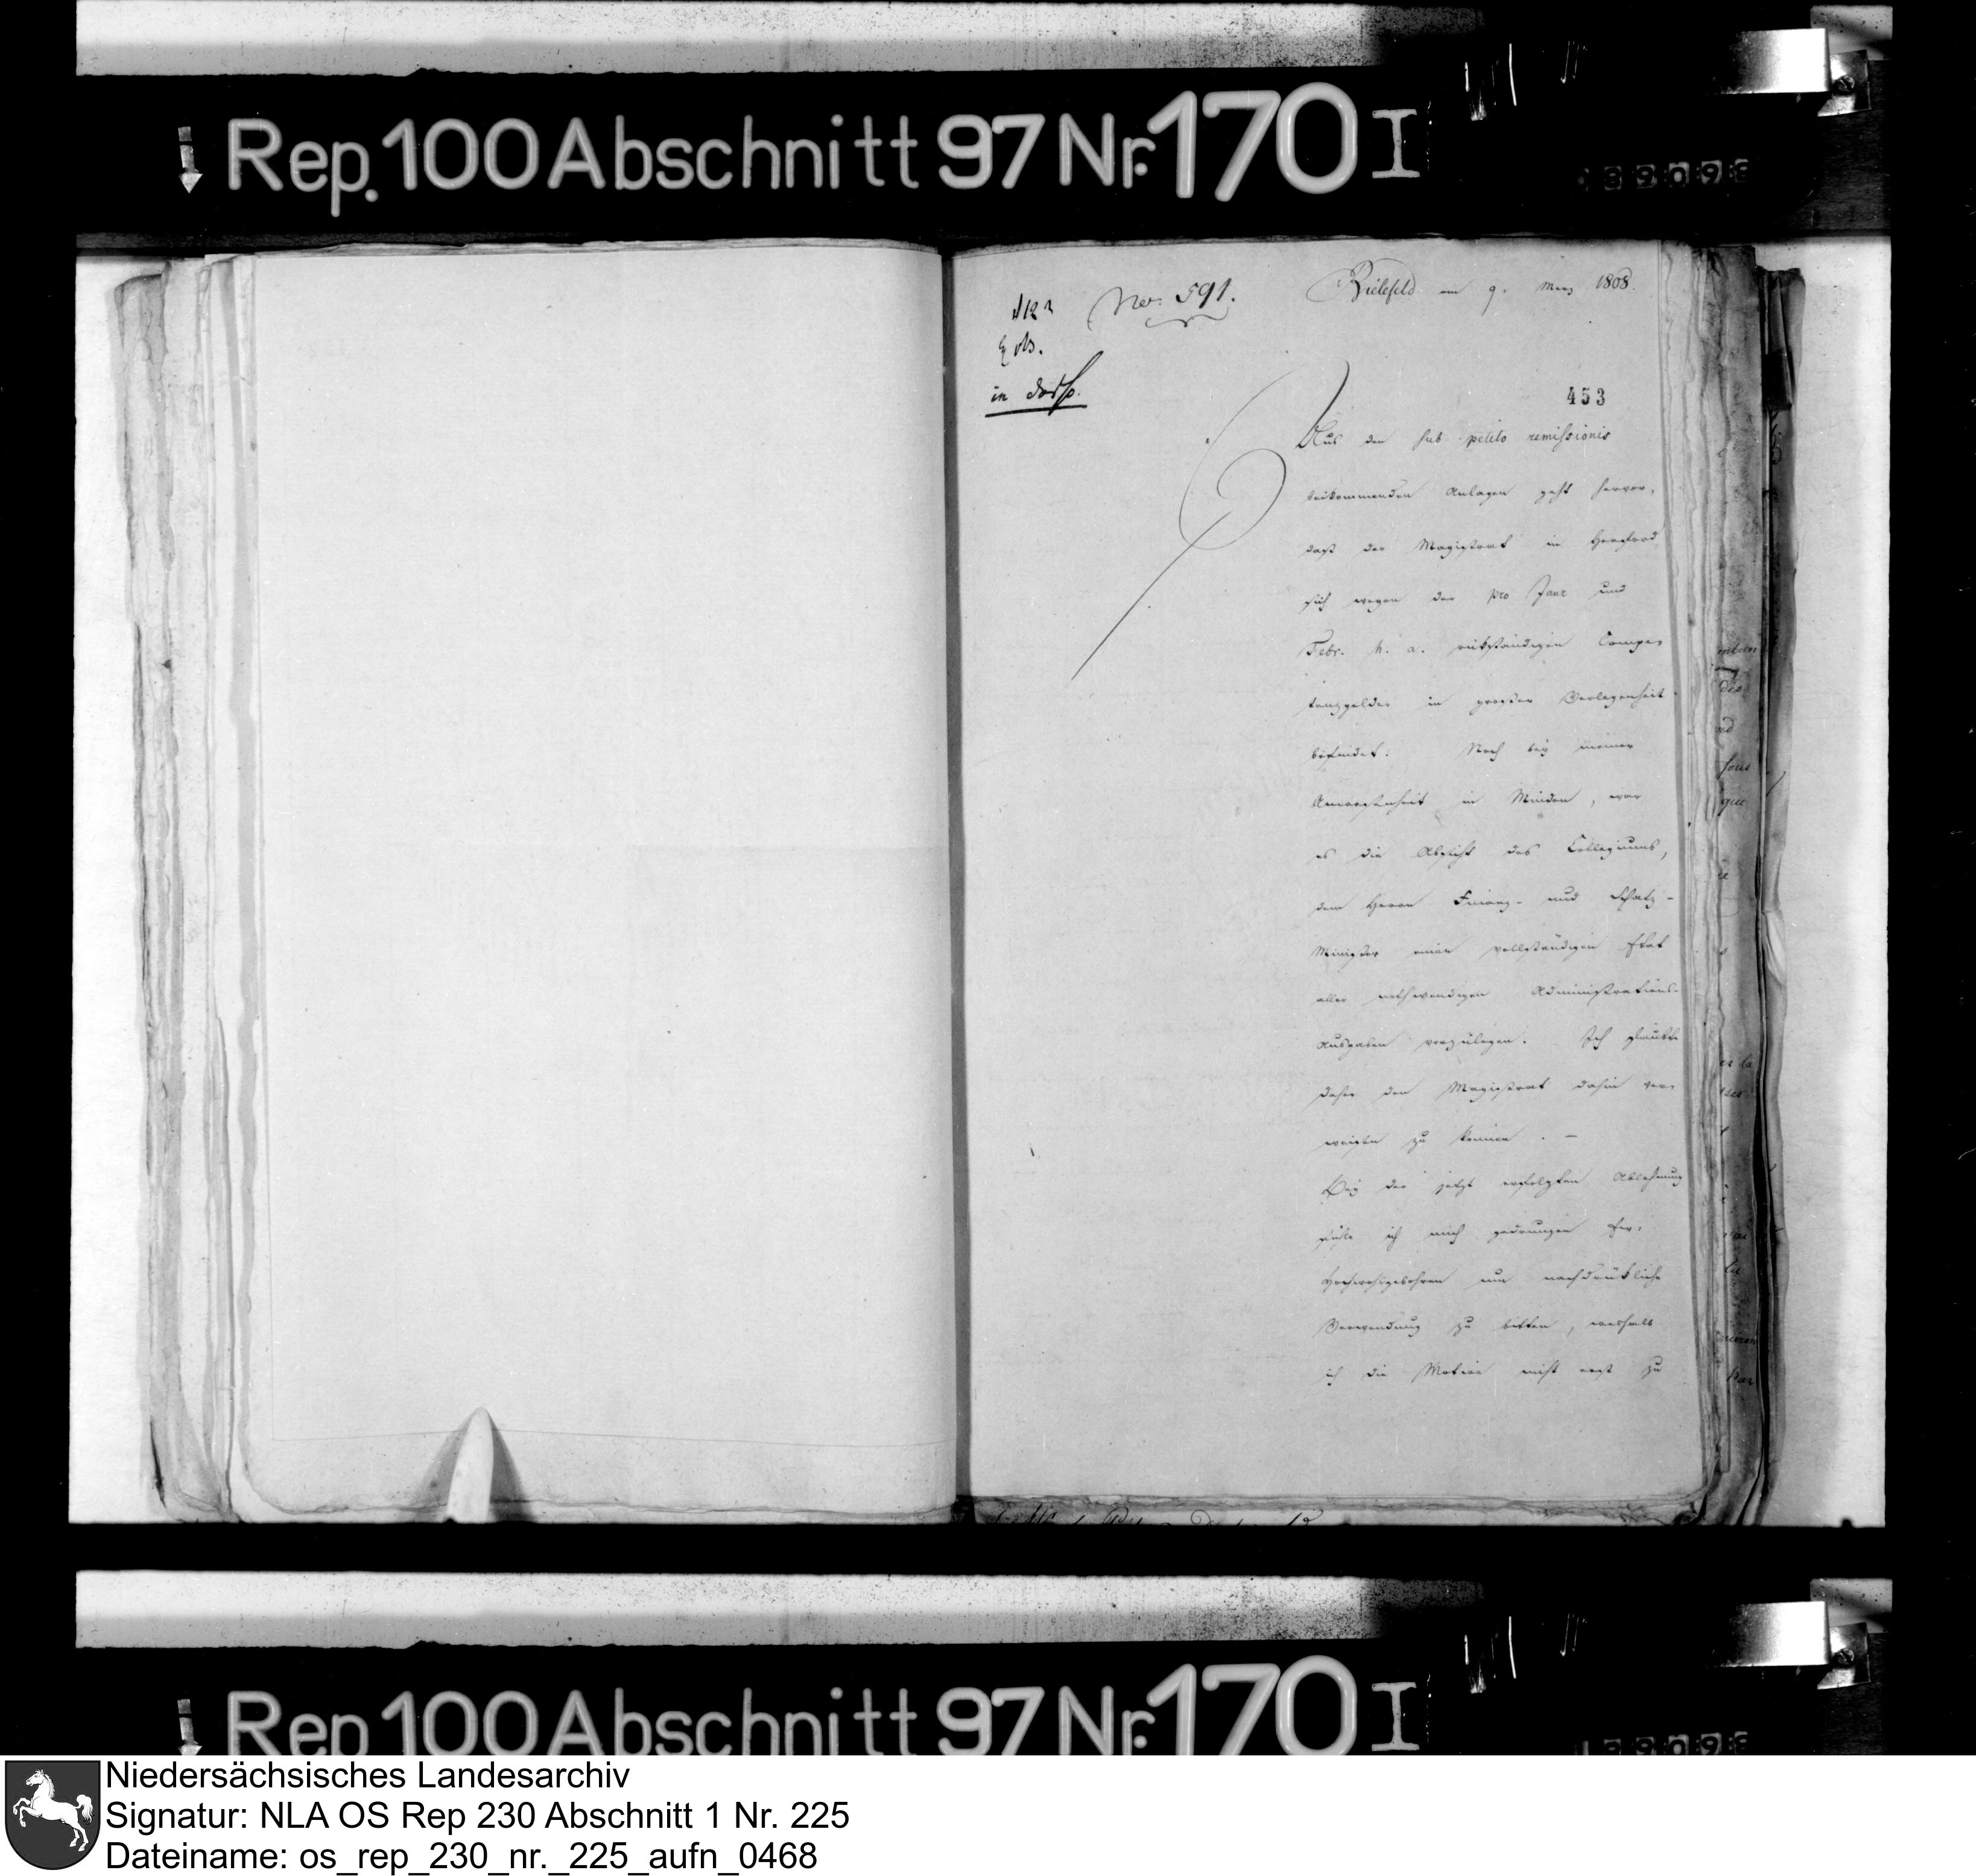 Rep. 100 Abschnitt 97 Nr. 170 I
No. 591.
Bielefeld am 9. Merz 1808.
in dorso.
453
Aus den sub petito remissionis
beikommenden Anlagen geht hervor,
daß der Magistrat in Herford
sich wegen der pro Janr und
Febr. h. a. rükständigen Compe-
tenzgelder in großer Verlegenheit
befindet. Noch bey meiner
Anwesenheit in Minden, war
es die Absicht des Collegiums,
dem Herrn Finanz- und Schatz-
Minister einen vollständigen Etat
aller nothwendigen Administrations-
Ausgaben vorzulegen. Ich glaubte
daher den Magistrat dahin ver-
weisen zu können. –
Bey der jetzt erfolgten Ablehnung
fühle ich mich gedrungen Ew.
Hochwohlgebohren um nachdrükliche
Verwendung zu bitten, weshalb
ich die Motive nicht erst zu
Rep 100 Abschnitt 97 Nr. 170 I
Niedersächsisches Landesarchiv
Signatur: NLA OS Rep 230 Abschnitt 1 Nr. 225
Dateiname: os_rep_230_nr._225_aufn_0468